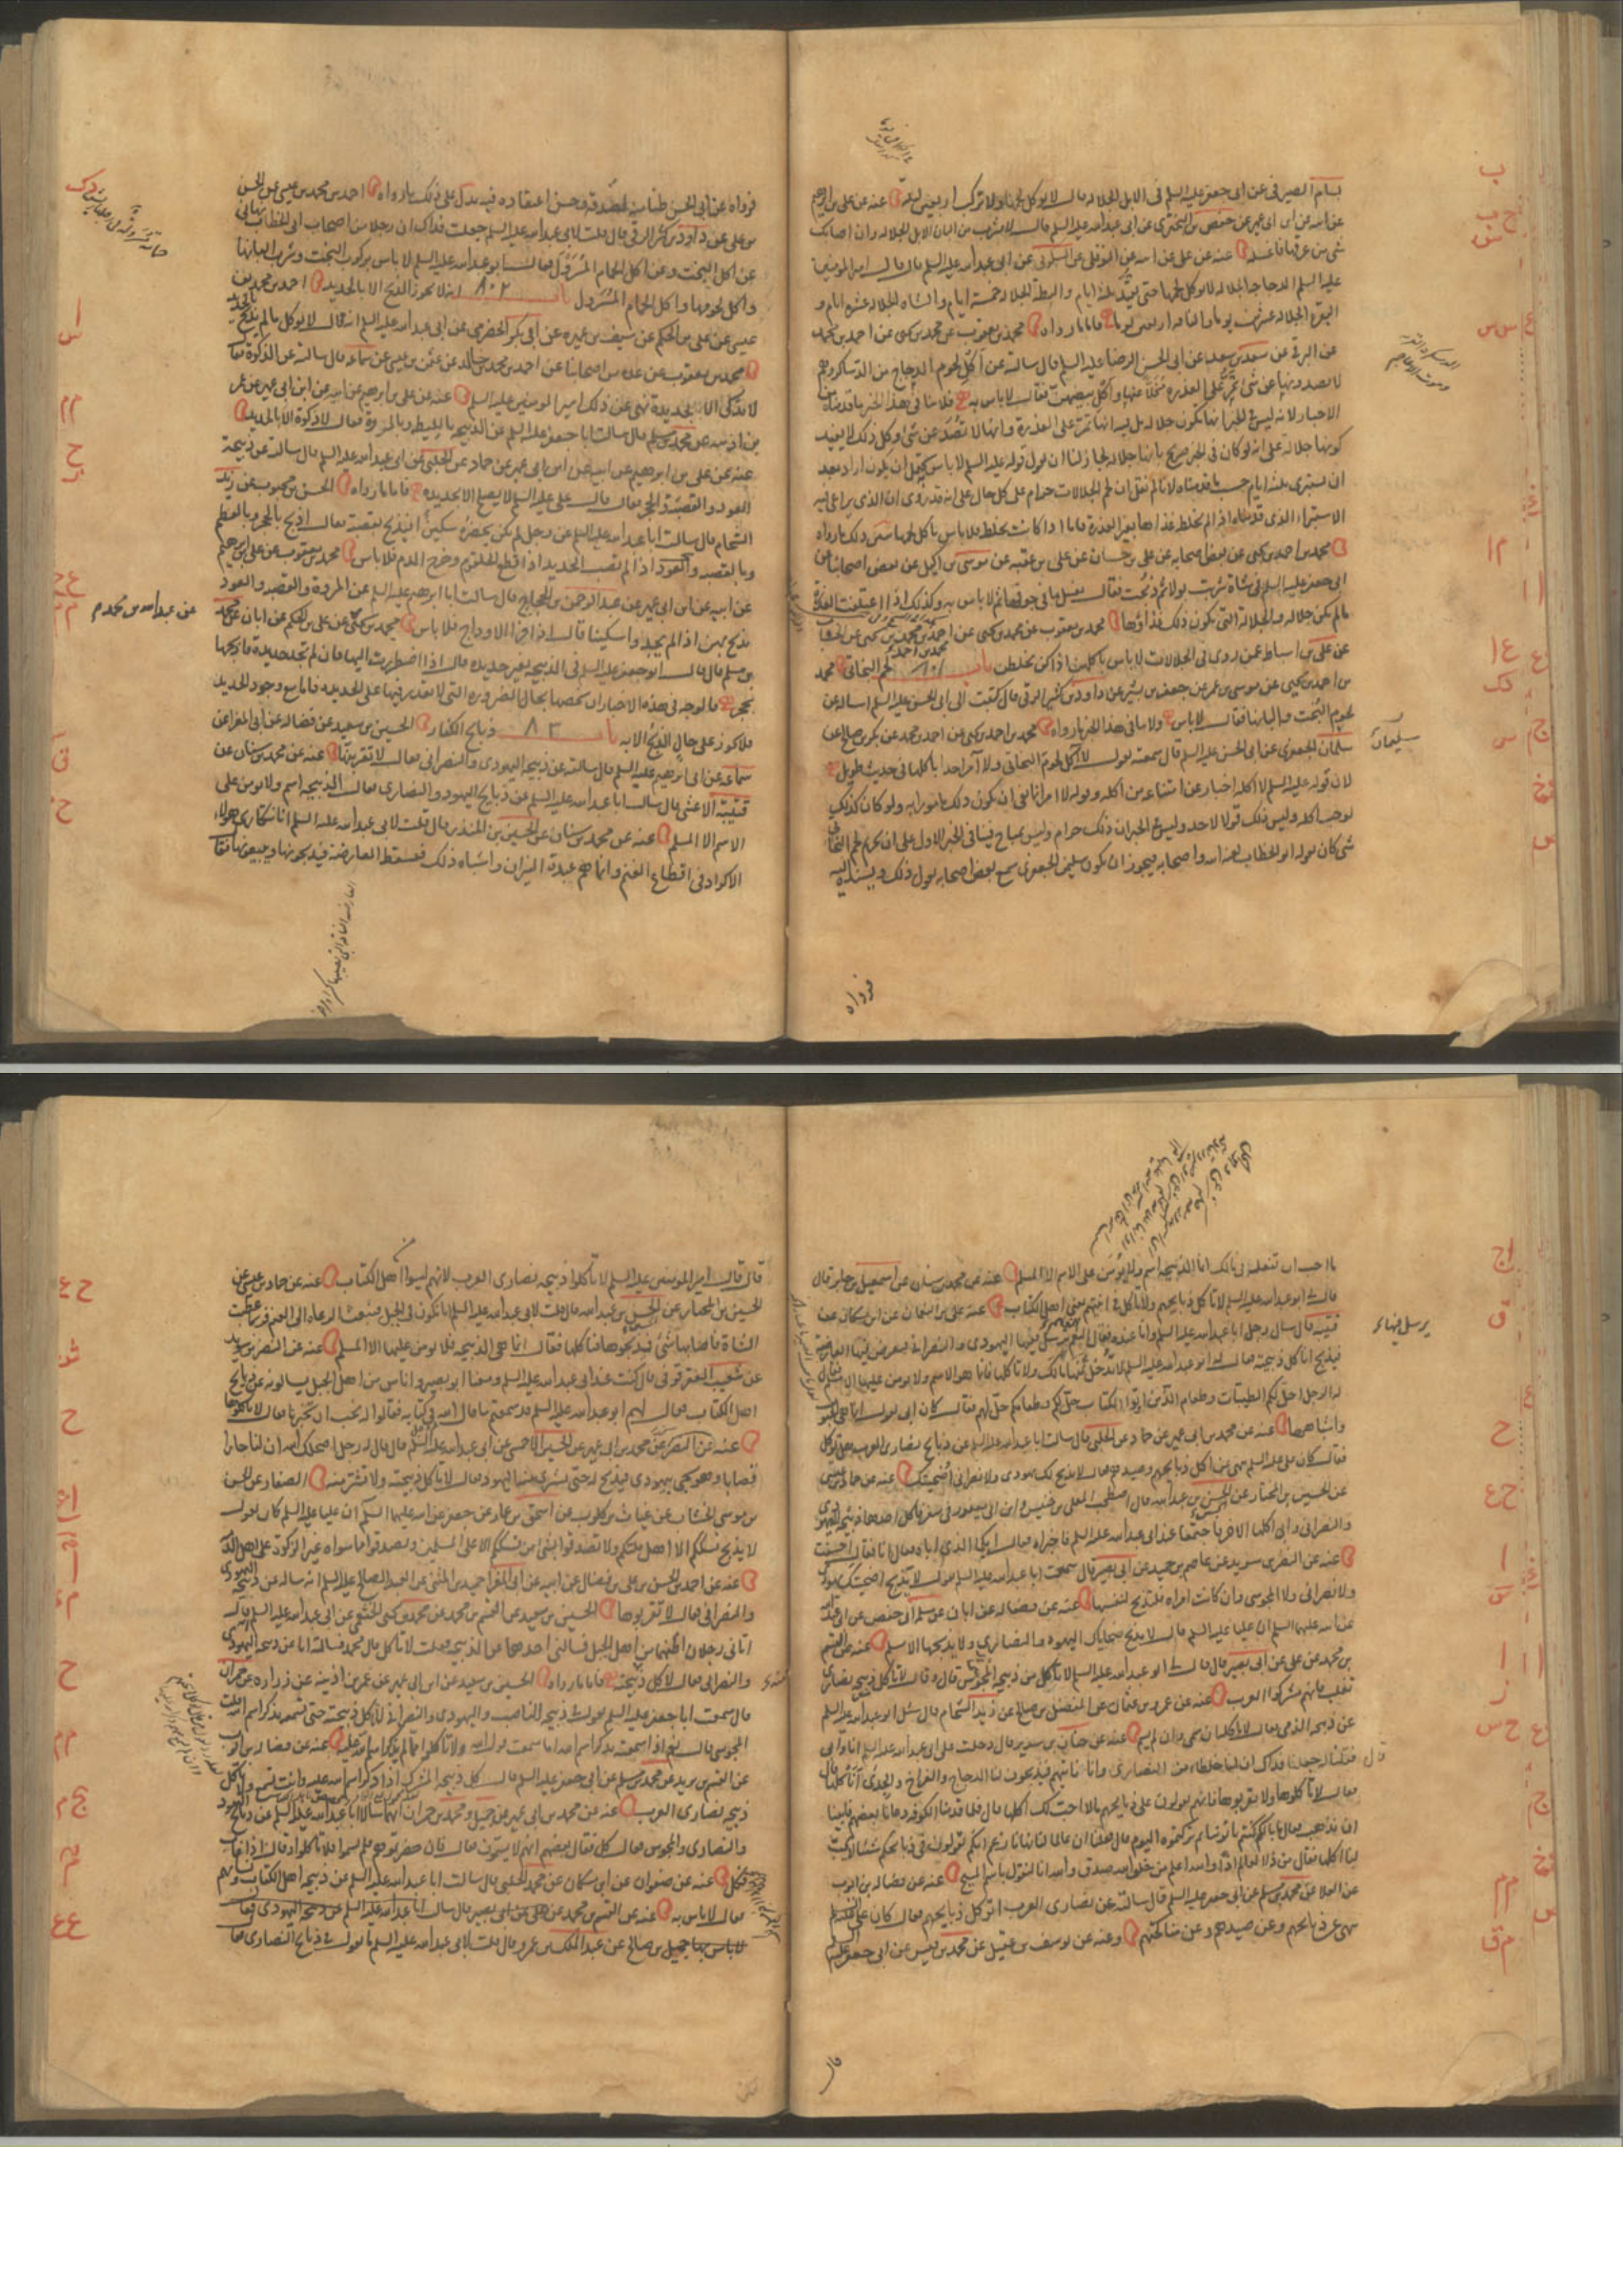 بسام الصيرفي عن ابي جعفر عليه السلم في الابل الجلالة قال لا يوكل لحمها ولا تركب اربعين يوما عنه عن علي بن ابرهيم
عن ابيه عن ابن ابي عمير عن حفص بن البختري عن ابي عبد الله عليه السلم قال لا تشرب من البان الابل الجلالة وان اصابك
شي من عرقها فاغسله عنه عن علي عن ابيه عن النوفلي عن السكوني عن ابي عبد الله عليه السلم قال قال امير المومنين
عليه السلم الدجاجة الجلالة لا يوكل لحمها حتى تقيد ثلثة ايام والبطة الجلالة خمسة ايام والشاة الجلالة عشرة ايام و
البقرة الجلالة عشرين يوما والناقة اربعين يوما فاما ما رواه محمد بن يعقوب عن محمد بن يحيى عن احمد بن محمد
عن البرقي عن سعد بن سعد عن ابي الحسن الرضا عليه السلم قال سالته عن اكل لحوم الدجاج من الدساكر وهم
لا يصدونها عن شي تمر على العذرة مخلا عنها واكل بيضهن فقال لا باس به فلا ينافي هذا الخبر ما قدمناه من
الاخبار لانه ليس في الخبر انها تكون جلالة بل فيه انها تمر على العذرة وانها لا تصد عن شي وكل ذلك لا يفيد
كونها جلالة على انه لو كان في الخبر صريح بانها جلالة لجاز لنا ان نقول قوله عليه السلم لا باس يحتمل ان يكون اراد بعد
ان تستبرى بثلثة ايام حسب ما قدمناه لانا لم نقل ان لحم الجلالات حرام على كل حال على انه قد روي ان الذي يراعى فيه
الاستبراء الذي قدمناه اذا لم يخلط غذاها بغير العذرة فاما اذا كانت تخلط فلا باس باكل لحمها يبين ذلك ما رواه
محمد بن احمد بن يحيى عن بعض اصحابه عن علي بن حسان عن علي بن عقبة عن موسى بن اكيل عن بعض اصحابنا عن
ابي جعفر عليه السلم في شاة شربت بولا ثم ذبحت فقال يغسل ما في جوفها ثم لا باس به وكذلك اذا اعتلفت العذرة
ما لم يكن جلالة والجلالة التي يكون ذلك غذاؤها محمد بن يعقوب عن محمد بن يحيى عن احمد بن محمد
عن علي بن اسباط عمن روى في الجلالات لا باس باكلهن اذا كن يخلطن باب ٨٠١ لحم البخاتي محمد
بن احمد بن يحيى عن موسى بن عمر عن جعفر بن بشير عن داود بن كثير الرقي قال كتبت الى ابي الحسن عليه السلم اساله عن
لحوم البخت والبانها فقال لا باس ولا ينافي هذا الخبر ما رواه محمد بن احمد بن يحيى عن احمد بن محمد عن بكر بن صالح عن
سلمان الجعفري عن ابي الحسن عليه السلم قال سمعته يقول لا اكل لحوم البخاتي ولا آمر احدا باكلها في حديث طويل
لان قوله عليه السلم لا اكله اخبار عن امتناعه من اكله وقوله لا امر انما نفى ان يكون ذلك مامورا به ولو كان كذلك
لوجب اكله وليس ذلك قولا لاحد وليس في الخبر ان ذلك حرام وليس بمباح فينافي الخبر الاول على ان تحريم لحم البخاتي
شي كان يقوله ابو الخطاب لعنه الله واصحابه فيجوز ان يكون سليمن الجعفري سمع بعض اصحابه يقول ذلك ويسنده اليه
سليمان
فرواه
فرواه عن ابي الحسن ظنا منه لصدقه وحسن اعتقاده فيه يدل على ذلك ما رواه احمد بن محمد بن عيسى عن الحسن
بن علي عن داود بن كثير الرقي قال قلت لابي عبد الله عليه السلم جعلت فداك ان رجلا من اصحاب ابي الخطاب نهاني
عن اكل البخت وعن اكل الحمام المسرول فقال ابو عبد الله عليه السلم لا باس بركوب البخت وشرب البانها
واكل لحومها واكل الحمام المسرول باب ٨٠٢ انه لا يجوز الذبح الا بالحديد احمد بن محمد بن
عيسى عن علي بن الحكم عن سيف بن عميرة عن ابي بكر الحضرمي عن ابي عبد الله عليه السلم انه قال لا يوكل ما لم يذبح بالحديد
محمد بن يعقوب عن عدة من اصحابنا عن احمد بن محمد بن خالد عن عثمن بن عيسى عن سماعة قال سالته عن الذكوة فقال
لا تذكى الا بالحديدة نهى عن ذلك امير المومنين عليه السلم عنه عن علي بن ابرهيم عن ابيه عن ابن ابي عمير عن عمر
بن اذينة عن محمد بن مسلم قال سالت ابا جعفر عليه السلم عن الذبيحة بالليطة وبالمروة فقال لا ذكوة الا بالحديدة
عنه عن علي بن ابرهيم عن ابيه عن ابن ابي عمير عن حماد عن الحلبي عن ابي عبد الله عليه السلم قال سالته عن ذبيحة
العود والقصبة والحجر فقال قال علي عليه السلم لا يصلح الا بحديدة فاما ما رواه الحسن بن محبوب عن زيد
الشحام قال سالت ابا عبد الله عليه السلم عن رجل لم يكن بحضرته سكين ايذبح بقصبة فقال اذبح بالحجر وبالعظم
وبالقصبة والعود اذا لم تصب الحديد اذا قطع الحلقوم وخرج الدم فلا باس محمد بن يعقوب عن علي بن ابرهيم
عن ابيه عن ابن ابي عمير عن عبد الرحمن بن الحجاج قال سالت ابا ابرهيم عليه السلم عن المروة والقصبة والعود
يذبح بهن اذا لم يجدوا سكينا قال اذا فرى الاوداج فلا باس محمد بن يحيى عن علي بن الحكم عن ابان عن محمد
بن مسلم قال قال ابو جعفر عليه السلم في الذبيحة بغير حديدة قال اذا اضطررت اليها فان لم تجد حديدة فاذبحها
بحجر فالوجه في هذه الاخبار ان نخصها بحال الضرورة التي لا نقدر فيها على الحديدة فاما مع وجود الحديد
فلا يجوز على حال الذبح الا به باب ٨٠٣ ذبايح الكفار الحسين بن سعيد عن فضالة عن ابي المغرا عن
سماعة عن ابي ابرهيم عليه السلم قال سالته عن ذبيحة اليهودي والنصراني فقال لا تقربنها عنه عن محمد بن سنان عن
قتيبة الاعشى قال سالت ابا عبد الله عليه السلم عن ذبايح اليهود والنصارى فقال الذبيحة اسم ولا يومن على
الاسم الا المسلم عنه عن محمد بن سنان عن الحسين بن المنذر قال قلت لابي عبد الله عليه السلم انا نتكارى هولاء
الاكراد في اقطاع الغنم وانما هم عبدة النيران واشباه ذلك فتسقط العارضة فيذبحونها ويبيعونها فقال
عن عبد الله بن محمد م
ما احب ان تفعله في مالك انما الذبيحة اسم ولا يومن على الاسم الا المسلم عنه عن محمد بن سنان عن اسمعيل بن جابر قال
قال لي ابو عبد الله عليه السلم لا تاكل ذبايحهم ولا تاكل في انيتهم يعني اهل الكتاب عنه عن علي بن النعمان عن ابن مسكان عن
قتيبة قال سال رجل ابا عبد الله عليه السلم وانا عنده فقال الغنم يرسل فيها اليهودي والنصراني فيعرض فيها العارضة
فيذبح اناكل ذبيحته فقال له ابو عبد الله عليه السلم لا تدخل ثمنها مالك ولا تاكلها فانما هو الاسم ولا يومن عليها الا المسلم فقال
له الرجل احل لكم الطيبات وطعام الذين اوتوا الكتاب حل لكم وطعامكم حل لهم فقال كان ابي يقول انما هي الحبوب
واشباهها عنه عن محمد بن ابي عمير عن حماد عن الحلبي قال سالت ابا عبد الله عليه السلم عن ذبايح نصارى العرب هل توكل
فقال كان علي عليه السلم ينهى عن اكل ذبايحهم وصيدهم فقال لا يذبح لك يهودي ولا نصراني اضحيتك عنه عن حماد بن عيسى
عن الحسين بن المختار عن الحسين بن عبد الله قال اصطحب المعلى بن خنيس وابن ابي يعفور في سفر فاكل احدهما ذبيحة اليهودي
والنصراني وابى اكلها الاخر فاجتمعا عند ابي عبد الله عليه السلم فاخبراه فقال ايكما الذي اباه فقال انا فقال احسنت
عنه عن النضر بن سويد عن عاصم بن حميد عن ابي بصير قال سمعت ابا عبد الله عليه السلم يقول لا يذبح اضحيتك يهودي
ولا نصراني ولا المجوسي وان كانت امراة فلتذبح لنفسها عنه عن فضالة عن ابان عن سلمة ابي حفص عن ابي عبد الله
عن ابيه عليهما السلم ان عليا عليه السلم قال لا يذبح ضحاياك اليهود والنصارى ولا يذبحها الا مسلم عنه عن القسم
بن محمد عن علي عن ابي بصير قال قال لي ابو عبد الله عليه السلم لا تاكل من ذبيحة المجوسي قال وقال لا تاكل ذبيحة نصارى
تغلب فانهم مشركوا العرب عنه عن عمرو بن عثمان عن المفضل بن صالح عن زيد الشحام قال سئل ابو عبد الله عليه السلم
عن ذبيحة الذمي فقال لا تاكله ان سمى وان لم يسم عنه عن حنان بن سدير قال دخلت على ابي عبد الله عليه السلم انا وابي
فقلنا له جعلنا فداك ان لنا خلطاء من النصارى وانا ناتيهم فيذبحون لنا الدجاج والفراخ والجدي افناكلها قال
فقال لا تاكلوها ولا تقربوها فانهم يقولون على ذبايحهم ما لا احب لك اكلها قال فلما قدمنا الكوفة دعانا بعضهم فابينا
ان نذهب فقال ما بالكم كنتم تاتونا ثم تركتموه اليوم قال فقلنا ان عالما لنا نهانا زعم انكم تقولون في ذبايحكم شيئا لا يحب
لنا اكلها فقال من ذا العالم اذا والله اعلم من خلق الله صدق والله انا لنقول باسم المسيح عنه عن فضالة بن ايوب
عن العلا عن محمد بن مسلم عن ابي جعفر عليه السلم قال سالته عن نصارى العرب اتوكل ذبايحهم فقال كان علي عليه السلم
ينهى عن ذبايحهم وعن صيدهم وعن مناكحتهم وعنه عن يوسف بن عقيل عن محمد بن قيس عن ابي جعفر عليه السلم
يرسل فيها
قال
قال قال امير المومنين عليه السلم لا تاكلوا ذبيحة نصارى العرب لانهم ليسوا اهل الكتاب عنه عن حماد بن عيسى عن
الحسين بن المختار عن الحسين بن عبد الله قال قلت لابي عبد الله عليه السلم انا نكون في الجبل فنبعث الرعاة الى الغنم فربما عطبت
الشاة فاصابها شي فيذبحوها فناكلها فقال انما هي الذبيحة فلا يومن عليها الا المسلم عنه عن النضر بن سويد
عن شعيب العقرقوفي قال كنت عند ابي عبد الله عليه السلم ومعنا ابو بصير واناس من اهل الجبل يسالونه عن ذبايح
اهل الكتاب فقال لهم ابو عبد الله عليه السلم قد سمعتم ما قال الله في كتابه فقالوا له نحب ان تخبرنا فقال لا تاكلوها
عنه عن النضر عن محمد بن ابي عمير عن الحسين الاحمسي عن ابي عبد الله عليه السلم قال قال له رجل اصلحك الله ان لنا جارا
قصابا وهو يجي بيهودي فيذبح له حتى يشتري منه اليهود فقال لا تاكل ذبيحته ولا تشتر منه الصفار عن الحسن
بن موسى الخشاب عن غياث بن كلوب عن اسحق بن عمار عن جعفر عن ابيه عليهما السلم ان عليا عليه السلم كان يقول
لا يذبح نسككم الا اهل ملتكم ولا تصدقوا بشي من نسككم الا على المسلمين وتصدقوا بما سواه غير الزكوة على اهل الذمة
عنه عن احمد بن الحسن بن علي بن فضال عن ابيه عن ابي المغرا حميد بن المثنى عن العبد الصالح عليه السلم انه ساله عن ذبيحة اليهودي
والنصراني فقال لا تقربوها الحسين بن سعيد عن القسم بن محمد عن محمد بن يحيى الخثعمي عن ابي عبد الله عليه السلم قال
اتاني رجلان اظنهما من اهل الجبل فسالني احدهما عن الذبيحة فقلت لا تاكل قال محمد فسالته انا عن ذبيحة اليهودي
والنصراني فقال لا تاكل ذبيحته فاما ما رواه الحسين بن سعيد عن ابن ابي عمير عن عمر بن اذينة عن زرارة عن حمران
قال سمعت ابا جعفر عليه السلم يقول في ذبيحة الناصب واليهودي والنصراني لا تاكل ذبيحته حتى تسمعه يذكر اسم الله قلت
المجوسي قال نعم اذا سمعته يذكر اسم الله اما سمعت قول الله ولا تاكلوا مما لم يذكر اسم الله عليه عنه عن فضالة بن ايوب
عن القسم بن بريد عن محمد بن مسلم عن ابي جعفر عليه السلم قال كل ذبيحة المشرك اذا ذكر اسم الله عليه وانت تسمع ولا تاكل
ذبيحة نصارى العرب عنه عن محمد بن ابي عمير عن جميل ومحمد بن حمران انهما سالا ابا عبد الله عليه السلم عن ذبايح اليهود
والنصارى والمجوس فقال كل فقال بعضهم انهم لا يسمون فقال فان حضرتموهم فلم يسموا فلا تاكلوا وقال اذا غاب
فكل عنه عن صفوان عن ابن مسكان عن محمد الحلبي قال سالت ابا عبد الله عليه السلم عن ذبيحة اهل الكتاب ونسائهم
فقال لا باس به عنه عن القسم بن محمد عن علي عن ابي بصير قال سالت ابا عبد الله عليه السلم عن ذبيحة اليهودي فقال
لا باس بها جميل بن صالح عن عبد الملك بن عمرو قال قلت لابي عبد الله عليه السلم ما تقول في ذبايح النصارى فقال